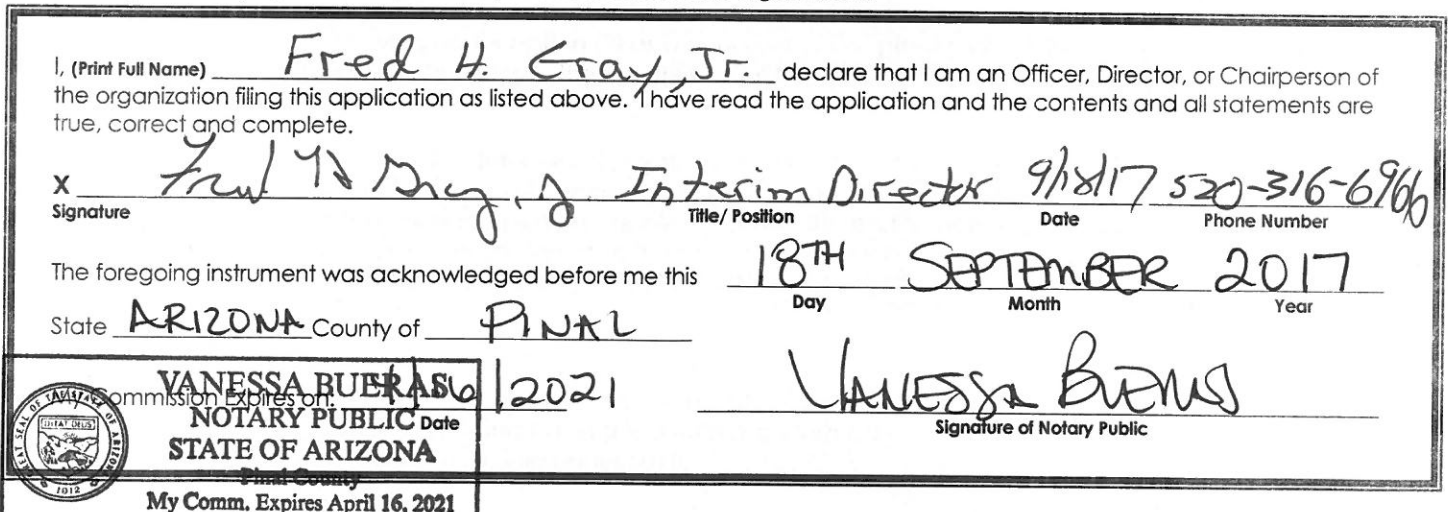 I, (Print Full Name) Fred H. Gray, Jr. declare that I am an Officer, Director, or Chairperson of
the organization filing this application as listed above. I have read the application and the contents and all statements are
true, correct and complete.
X Fred H Gray, Jr. Interim Director 9/18/17 520-316-6966
Signature Title/ Position Date Phone Number
The foregoing instrument was acknowledged before me this 18TH SEPTEMBER 2017
Day Month Year
State ARIZONA County of PINAL
My Commission Expires on: 4/16/2021
Date
VANESSA BUERAS
NOTARY PUBLIC
STATE OF ARIZONA
Pinal County
My Comm. Expires April 16, 2021
GREAT SEAL OF THE STATE OF ARIZONA
DITAT DEUS
1912
VANESSA BUERAS
Signature of Notary Public